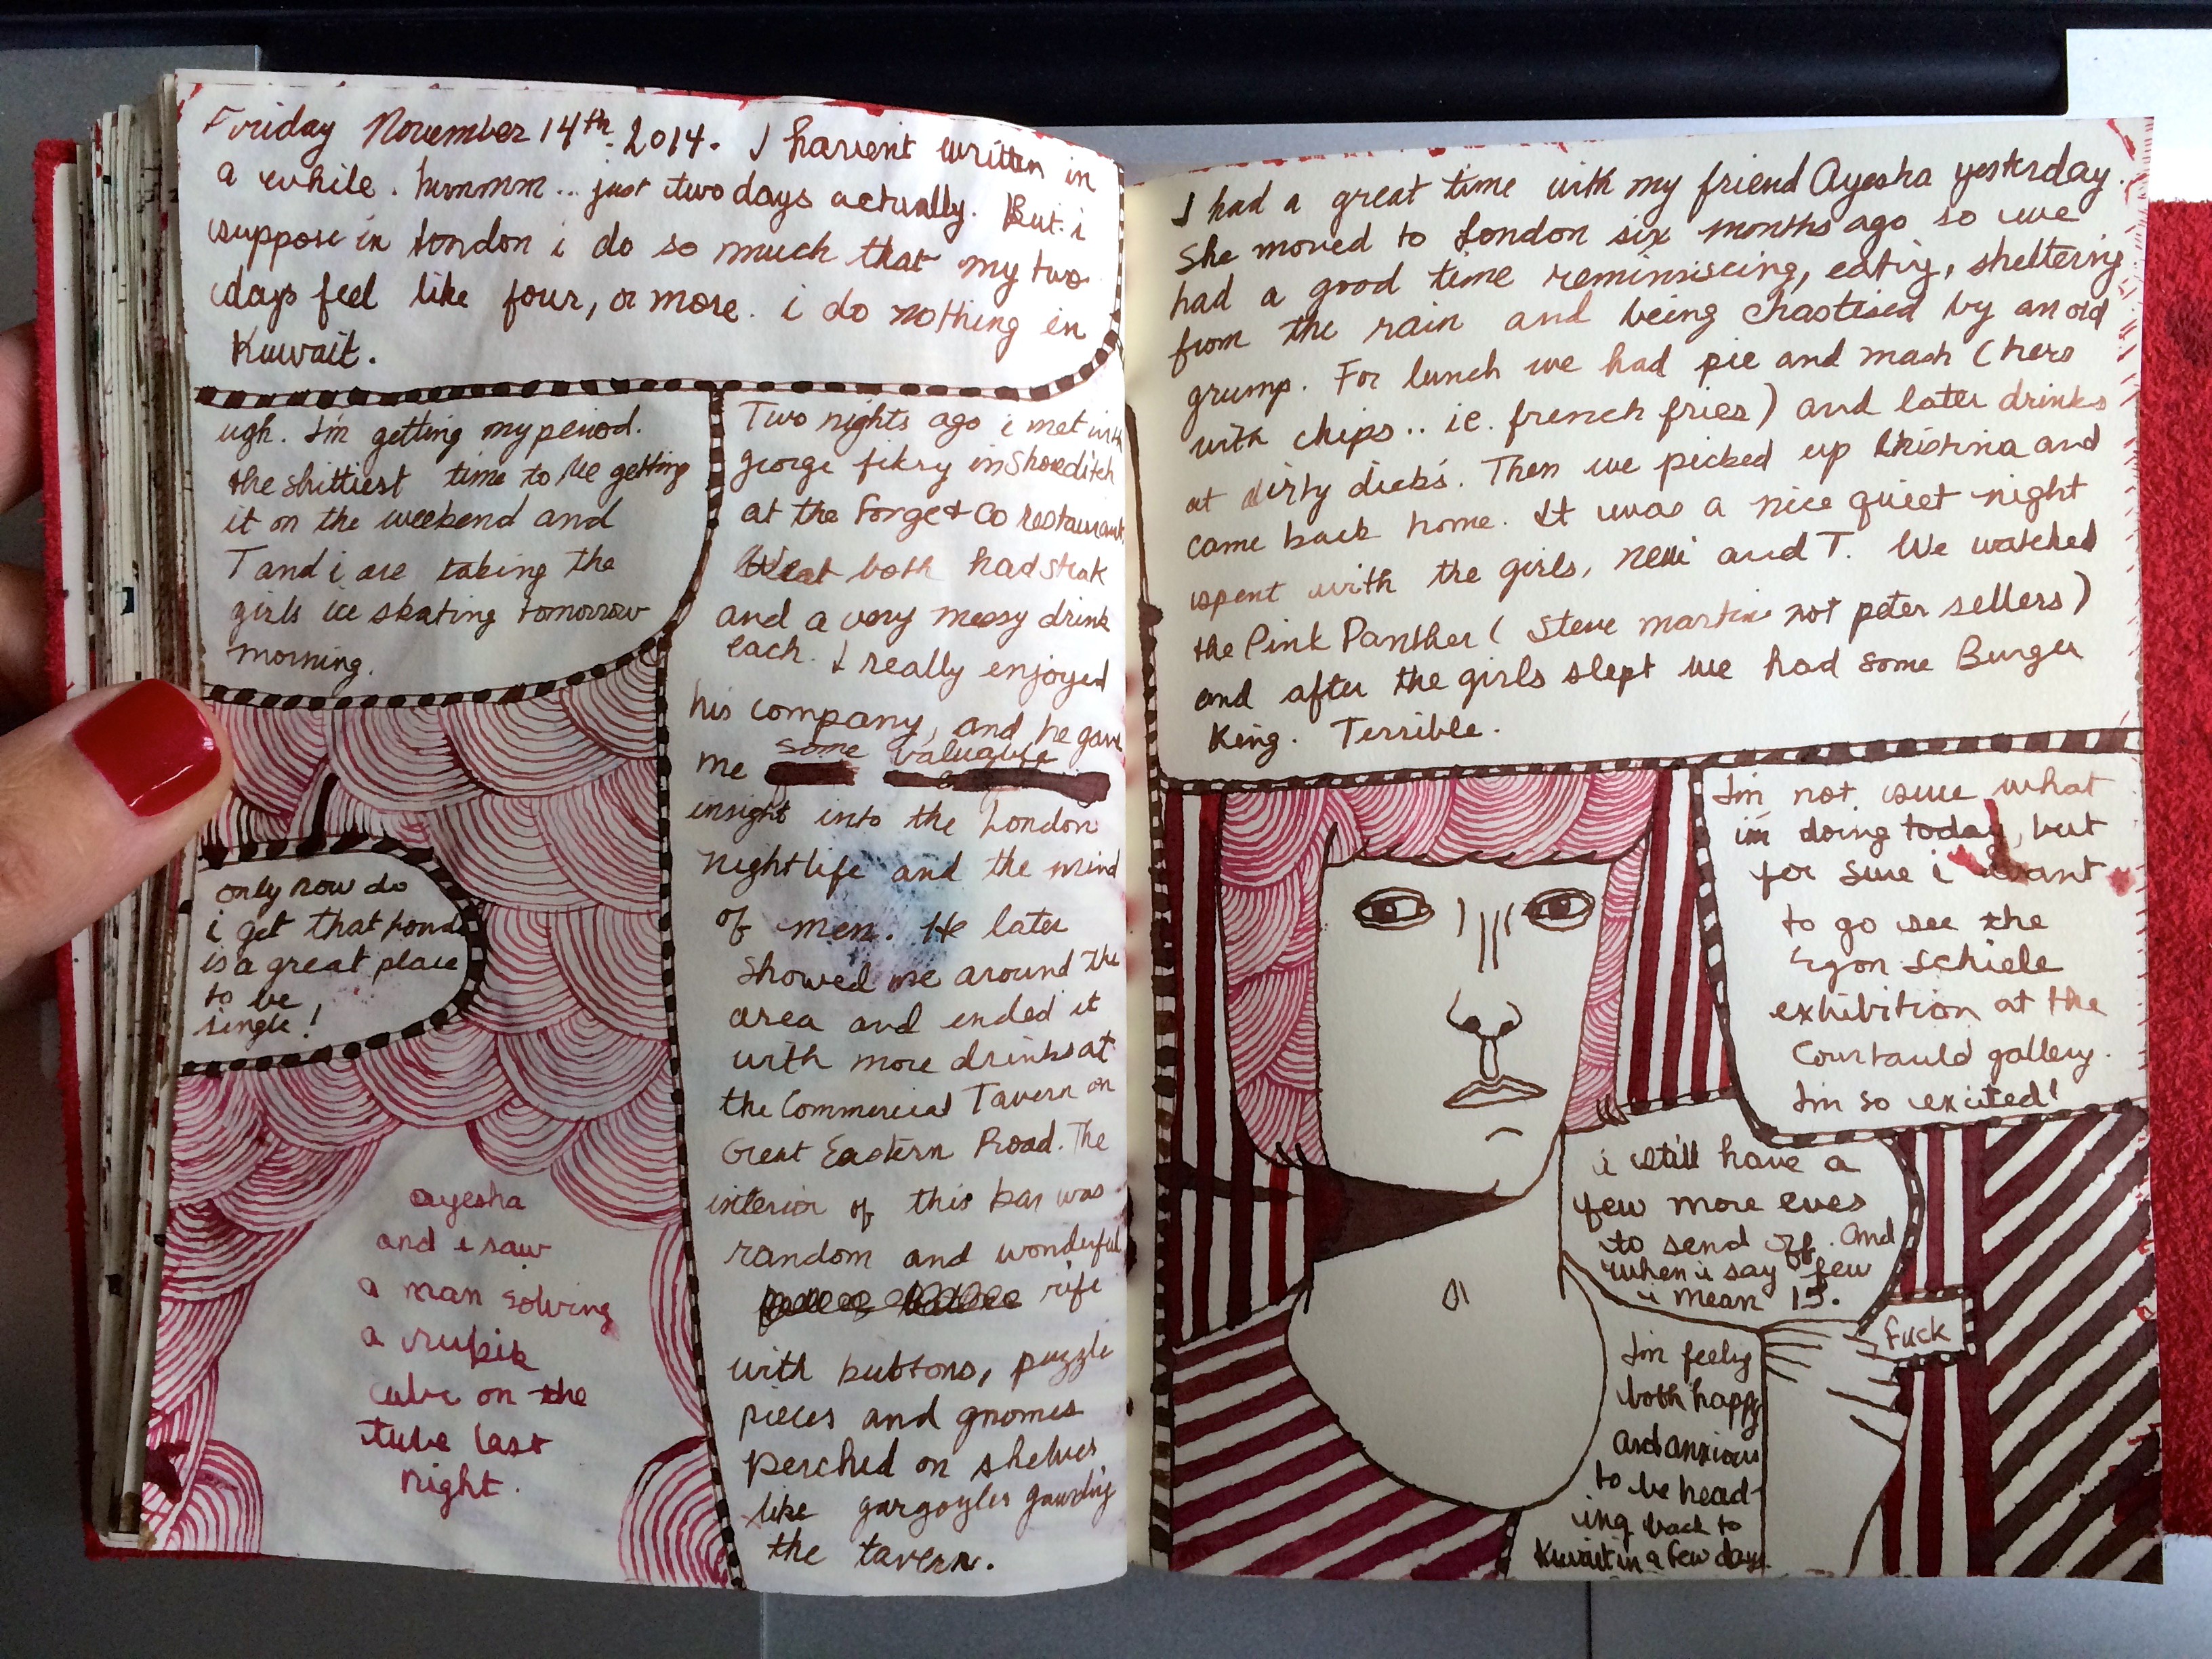 Friday November 14th 2014. I havent written in
a while. hmmmm... just two days actually. But i
suppose in London i do so much that my two
days feel like four, or more. i do nothing in
Kuwait.
ugh. I'm getting my period.
the shittiest time to be getting
it on the weekend and
T and i are taking the
girls ice skating tomorrow
morning.
only now do
i get that
is a great place
to be
single!
ayesha
and i saw
a man solving
a rubik
cube on the
tube last
night.
Two nights ago i met with
george fikry in Shoreditch
at the Forge & Co restaurant.
We both had steak
and a very messy drink
each. I really enjoyed
his company, and he gave
me some valuable
insight into the London
nightlife and the mind
of men. He later
showed me around the
area and ended it
with more drinks at
the Commercial Tavern on
Great Eastern Road. The
interior of this bar was
random and wonderful
rife
with buttons, puzzle
pieces and gnomes
perched on shelves
like gargoyles gaurding
the tavern.
I had a great time with my friend Ayesha yesterday.
She moved to London six months ago so we
had a good time reminiscing, eating, sheltering
from the rain and being chastised by an old
grump. For lunch we had pie and mash (hers
with chips.. ie. french fries) and later drinks
at dirty dicks. Then we picked up Khistina and
came back home. It was a nice quiet night
spent with the girls, and T. We watched
the Pink Panther (Steve martin not peter sellers)
and after the girls slept we had some Burger
King. Terrible.
I'm not sure what
im doing today, but
for sure i want
to go see the
Egon Schiele
exhibition at the
Courtauld gallery.
I'm so excited!
i still have a
few more eves
to send off. And
when i say "few"
i mean 15.
Fuck
I'm feeling
both happy
and anxious
to be head-
ing back to
Kuwait in a few days.